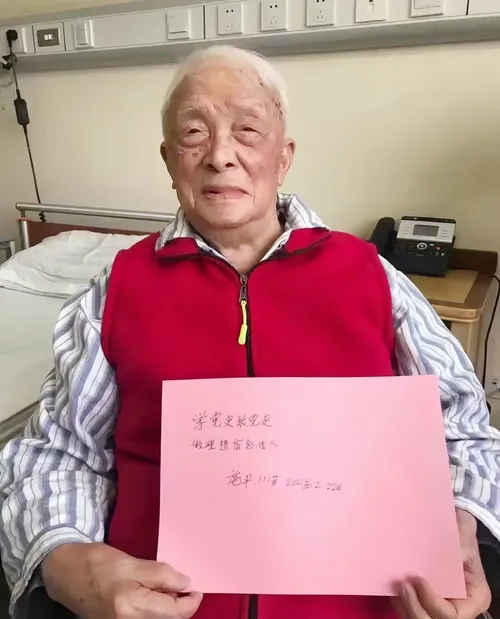 学党史跟党走
做理想信念传人
施平 111岁 2021年2.22日